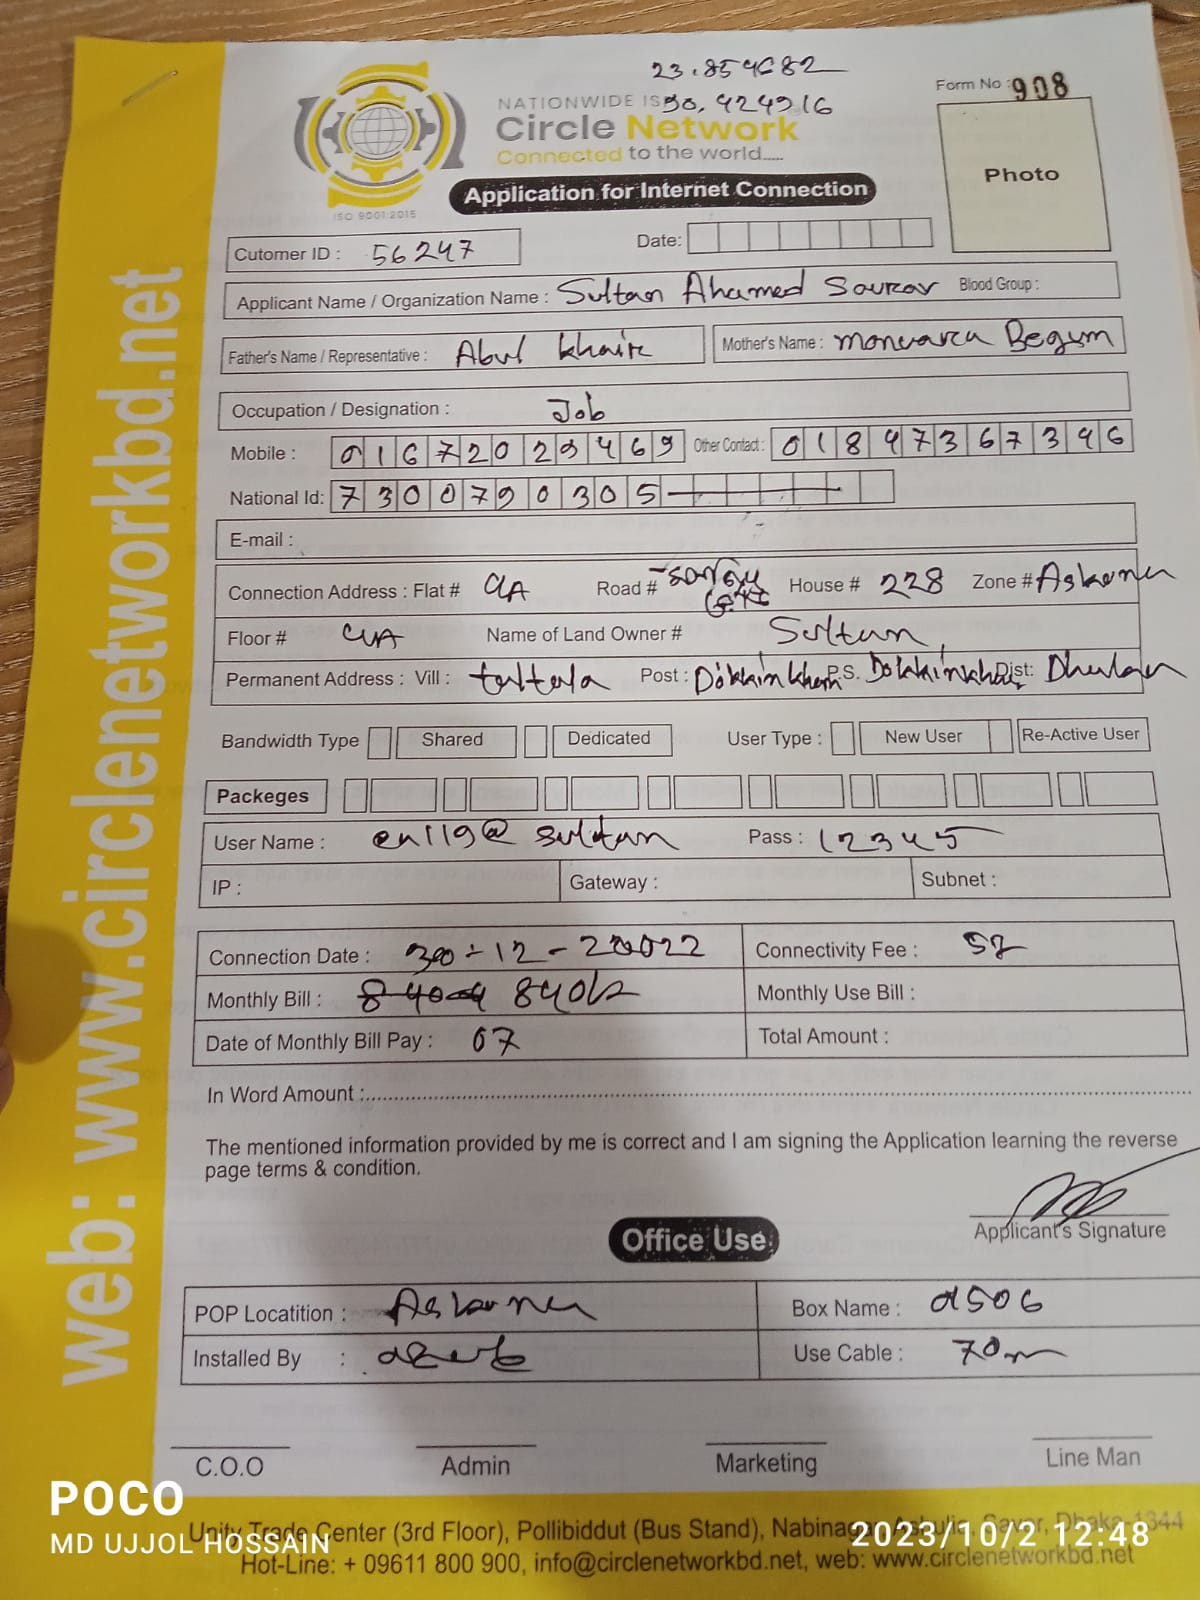 23.854682
NATIONWIDE IS 90.424916
Form No : 908
Circle Network
Connected to the world.....
ISO 9001:2015
Photo
Application for Internet Connection
Cutomer ID : 56247 Date:
Applicant Name / Organization Name : Sultan Ahamed Sourav Blood Group :
Father's Name / Representative : Abul Khair Mother's Name : monuara Begum
Occupation / Designation : Job
Mobile : 01672029469 Other Contact : 01847367346
National Id: 7300790305
E-mail :
Connection Address : Flat # Road # House # 228 Zone # Askona
Floor # Name of Land Owner # Sultan
Permanent Address : Vill : taltala Post : Dokkhinkhan P.S. Dokkhinkhan Dist: Dhaka
Bandwidth Type Shared Dedicated User Type : New User Re-Active User
Packeges
User Name : en119@sultan Pass : 12345
IP : Gateway : Subnet :
Connection Date : 30-12-2022 Connectivity Fee :
Monthly Bill : 840/= Monthly Use Bill :
Date of Monthly Bill Pay : 07 Total Amount :
In Word Amount :
The mentioned information provided by me is correct and I am signing the Application learning the reverse
page terms & condition.
Applicant's Signature
Office Use
POP Locatition : Askona Box Name : d506
Installed By : Use Cable : 70m
C.O.O Admin Marketing Line Man
Unity Trade Center (3rd Floor), Pollibiddut (Bus Stand), Nabinagar, Ashulia, Savar, Dhaka-1344
Hot-Line: + 09611 800 900, info@circlenetworkbd.net, web: www.circlenetworkbd.net
web: www.circlenetworkbd.net
POCO
MD UJJOL HOSSAIN
2023/10/2 12:48